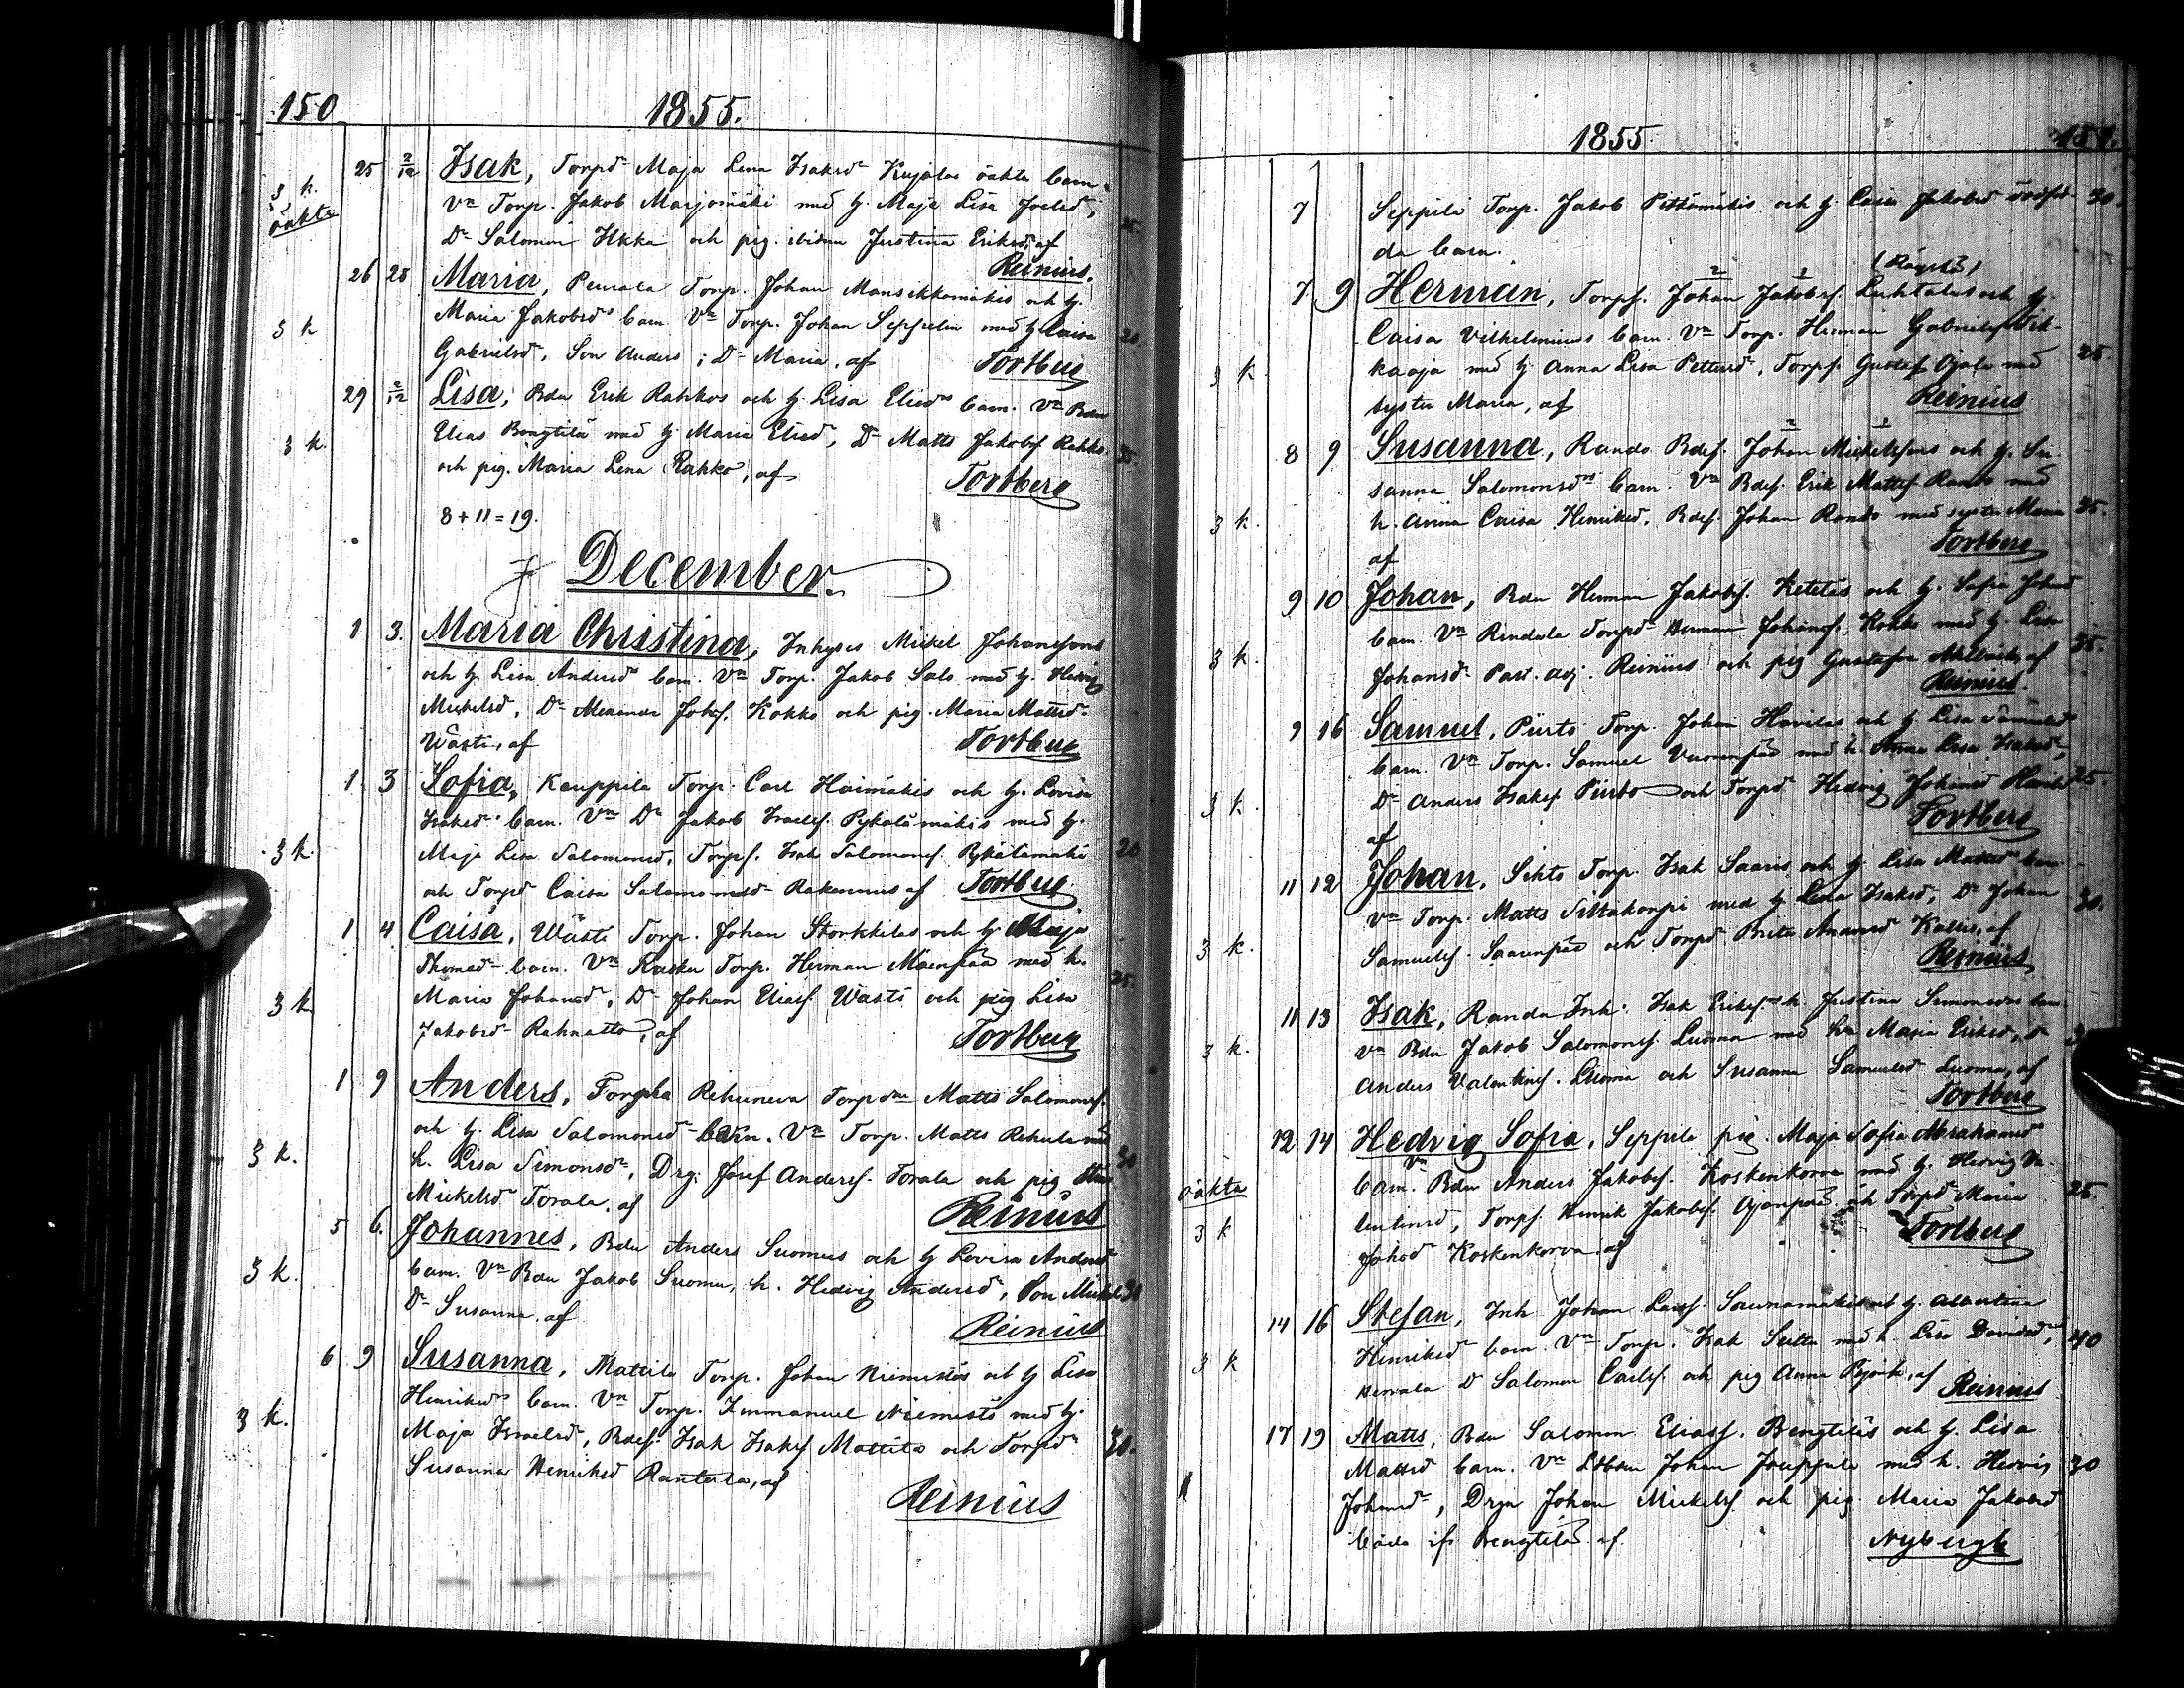 150
1855.
25 2/12 Isak, Torpd Maja Lena Isaksd Kujalas oäkta barn.
3 k. Vn Torp. Jakob Marjomäki med h. Maja Lisa Joelsd, 25.
oäkta Dr Salomon Ukko och pig. ibidm Justina Eriksd, af
Reinius.
26 28 Maria, Peurala Torp. Johan Mansikkamäkis och h.
3 k Maria Jakobsds barn. Vn Torp. Johan Seppelin med h Caisa 20
Gabrielsd, Son Anders; Dr Maria, af Tortberg
29 2/12 Lisa, Bdn Erik Rahkos och h. Lisa Eliæds barn. Vn Bdn
3 k. Elias Bengtilä med h Maria Eliæd, Dr Matts Jakobsf Rahko 35.
och pig. Maria Lena Rahko, af Tortberg
8 + 11 = 19.
December.
1 3. Maria Christina, Inhyses Mickel Johanssons
och h. Lisa Andersds barn. Vn Torp. Jakob Salo med h. Hedvig
Mickelsd, Dr Alexander Johsf. Kokko och pig. Maria Mattsd
Wästi, af Tortberg
1 3 Sofia, Kauppila Torp. Carl Haimäkis och h. Lovisa
Isaksds barn. Vn Dr Jakob Israelsf. Pykälämäkis med h.
3 k. Maja Lisa Salomonsd, Torpf. Isak Salomonsf. Pykälämäki 20
och Torpd Caisa Salomonsd Rakennus af Tortberg
1 4. Caisa, Wästi Torp. Johan Storkkilas och h Maja
Thomæd barn. Vn Rasku Torp. Herman Mäenpää med h.
3 k Maria Johansd, Dr Johan Eliasf. Wästi och pig Lisa 25.
Jakobsd Rahnasto, af Tortberg
1 9 Anders, Torpka Rehuneva Torpdrn Matts Salomonsf.
och h. Lisa Salomonsd barn. Vn Torp. Matts Rehula med
3 k. h. Lisa Simonsd, Drg. Josef Andersf. Torala och pig 30
Mickelsd Torala, af Reinius
5 6. Johannes, Bdn Anders Suomus och h Lovisa Andersd
3 k. barn. Vn Bdn Jakob Suomu, h. Hedvig Andersd, Son Mickel 30
Dr Susanna, af Reinius
6 9 Susanna, Mattila Torp. Johan Niemistös och h Lisa
Henriksds barn. Vn Torp. Immanuel Niemistö med h.
3 k. Maja Israelsd, Bdsf. Isak Isaksf Mattila och Torpd 30.
Susanna Henriksd Rantala, af
Reinius
1855.
151.
7 Seppilä Torp. Jakob Pitkämäkis och h. Caisa Jakobsd dödföd- 30.
da barn.
7 9 Herman, Torpf. Johan Jakobsf. Luhtalas och h.
Caisa Vilhelminas barn. Vn Torp. Herman Gabrielsf
3 k. kaoja med h Anna Lisa Pettersd, Torpf. Gustaf Ojala med 25.
syster Maria, af Reinius
8 9 Susanna, Rando Bdsf. Johan Mickelssons och h. Su-
sanna Salomonsds barn. Vn Bdsf. Erik Mattsf Rando med
3 k. h. Anna Caisa Henriksd, Bdsf. Johan Rando med syster Maria 35.
af Tortberg
9 10 Johan, Bdn Herman Jakobsf. Ketelas och h. Sofia Johansd
barn. Vn Rindala Torpdr Herman Johansf. Kokko med h. Lisa
3 k. Johansd. Past. adj. Reinius och pig Gustafva Ahlbäck, af 35.
Reinius.
9 16 Samuel, Piirto Torp. Johan Havilas och h Lisa Samuelsd
barn. Vn Torp. Samuel Vuorenpää med h. Anna Lisa Isaksd,
3 k. Dr Anders Isaksf Piirto och Torpd Hedvig Johansd Havila 25.
af Tortberg
11 12 Johan, Sihto Torp. Isak Saaris och h Lisa Mattsd barn
Vn Torp. Matts Siltakorpi med h Lena Isaksd, Dr Johan 30.
3 k. Samuelsf. Saarenpää och Torpd Brita Andersd Kallio, af
Reinius
11 13 Isak, Randa Inh. Isak Eriksf. h. Justina Simonsds barn
3 k. Vn Bdn Jakob Salomonsf. Luoma med hu Maria Eriksd, D
Anders Valentinsf. Luoma och Susanna Samuelsd Luoma, af
Tortberg
12 14 Hedvig Sofia, Seppila pig. Maja Sofia Abrahamsd
oäkta barn. Vn Bdn Anders Jakobsf. Koskenkorva med h. Hedvig Va- 25.
3 k lentinsd, Torpf. Henrik Jakobsf. Ojanperä och Torpd Maria
Johsd Koskenkorva af Tortberg
14 16 Stefan, Inh Johan Larsf. Saunamäkis och h. Albertina
3 k Henriksd barn. Vn Torp. Isak Sulta med h. Lisa Davidsd, 40
Hernala D Salomon Carlsf. och pig Anna Björk, af Reinius
17 19 Matts, Bdn Salomon Eliasf. Bengtiläs och h. Lisa
Mattsd barn. Vn Ldbdn Johan Jouppila med h. Hedvig 30
Johansd, Drgn Johan Mickelsf och pig Maria Jakobsd
båda ifr Bengtilä af Nybergh